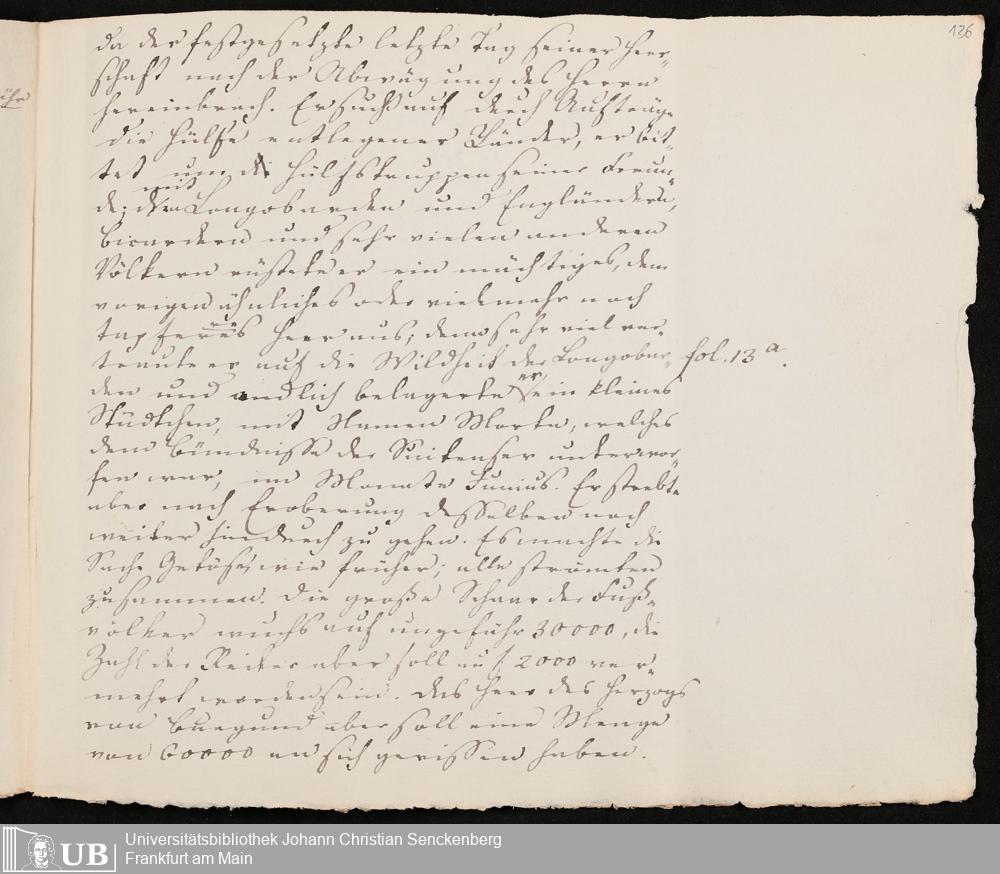 126
da der festgesetzte letzte Tag seiner Herr-
schaft nach der Abwägung des Herrn
hereinbrach. Er sucht auf durch Aufträge
die Hülfe entlegener Länder, er bit-
tet um die Hülfstruppen seiner Freun-
de; mit den Longobarden und Engländern,
Bicardern und sehr vielen anderen
Völkern rüstete er ein mächtiges, dem
vorigen ähnliches oder vielmehr noch
tapfereres Heer aus; denn sehr viel ver-
traute er auf die Wildheit der Longobar- fol. 13 a.
den und endlich belagerte er ein kleines
Städtchen, mit Namen Morta, welches
dem Bündnisse der Suitenser unterwor-
fen war, im Monate Junius. Er strebte
aber nach Eroberung desselben noch
weiter hindurch zu gehen. Es machte die
Sache Getöse, wie früher; alle strömten
zusammen. Die große Schaar der Fuß-
völker wuchs auf ungefähr 30000, die
Zahl der Reiter aber soll auf 2000 ver-
mehrt worden sein. Das Heer des Herzogs
von Burgund aber soll eine Menge
von 60000 an sich gerissen haben.
UB
Universitätsbibliothek Johann Christian Senckenberg
Frankfurt am Main